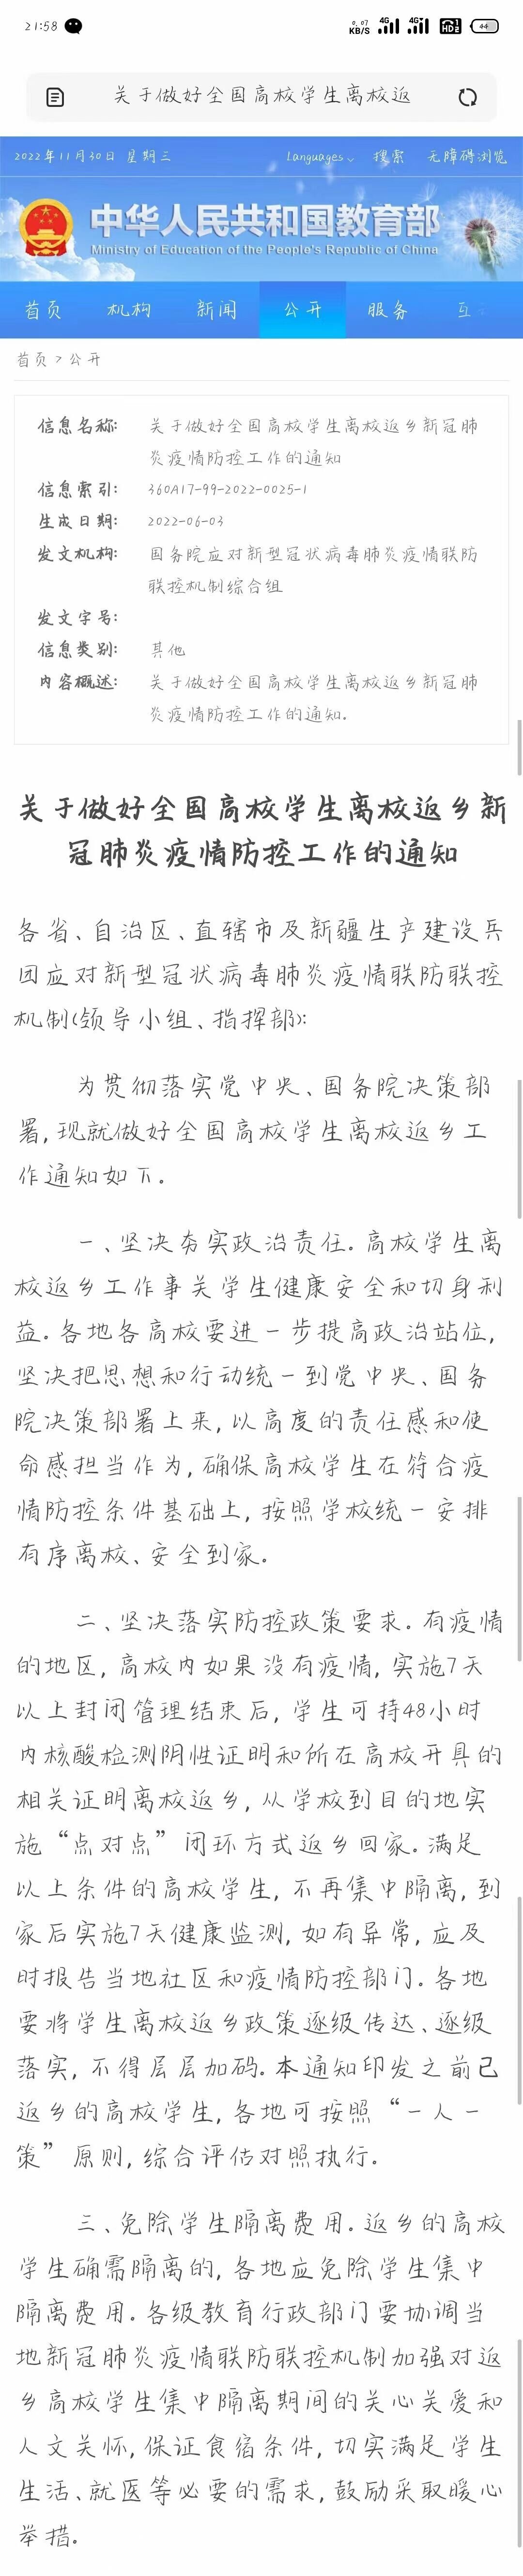 21:58
0.07 KB/S 4G 4G HD 1 44
关于做好全国高校学生离校返
2022年11月30日 星期三 Languages 搜索 无障碍浏览
中华人民共和国教育部
Ministry of Education of the People's Republic of China
首页 机构 新闻 公开 服务 互
首页 > 公开
信息名称: 关于做好全国高校学生离校返乡新冠肺
炎疫情防控工作的通知
信息索引: 360A17-99-2022-0025-1
生成日期: 2022-06-03
发文机构: 国务院应对新型冠状病毒肺炎疫情联防
联控机制综合组
发文字号:
信息类别: 其他
内容概述: 关于做好全国高校学生离校返乡新冠肺
炎疫情防控工作的通知。
关于做好全国高校学生离校返乡新
冠肺炎疫情防控工作的通知
各省、自治区、直辖市及新疆生产建设兵
团应对新型冠状病毒肺炎疫情联防联控
机制(领导小组、指挥部):
为贯彻落实党中央、国务院决策部
署,现就做好全国高校学生离校返乡工
作通知如下。
一、坚决夯实政治责任。高校学生离
校返乡工作事关学生健康安全和切身利
益。各地各高校要进一步提高政治站位,
坚决把思想和行动统一到党中央、国务
院决策部署上来,以高度的责任感和使
命感担当作为,确保高校学生在符合疫
情防控条件基础上,按照学校统一安排
有序离校、安全到家。
二、坚决落实防控政策要求。有疫情
的地区,高校内如果没有疫情,实施7天
以上封闭管理结束后,学生可持48小时
内核酸检测阴性证明和所在高校开具的
相关证明离校返乡,从学校到目的地实
施“点对点”闭环方式返乡回家。满足
以上条件的高校学生,不再集中隔离,到
家后实施7天健康监测,如有异常,应及
时报告当地社区和疫情防控部门。各地
要将学生离校返乡政策逐级传达、逐级
落实,不得层层加码。本通知印发之前已
返乡的高校学生,各地可按照“一人一
策”原则,综合评估对照执行。
三、免除学生隔离费用。返乡的高校
学生确需隔离的,各地应免除学生集中
隔离费用。各级教育行政部门要协调当
地新冠肺炎疫情联防联控机制加强对返
乡高校学生集中隔离期间的关心关爱和
人文关怀,保证食宿条件,切实满足学生
生活、就医等必要的需求,鼓励采取暖心
举措。